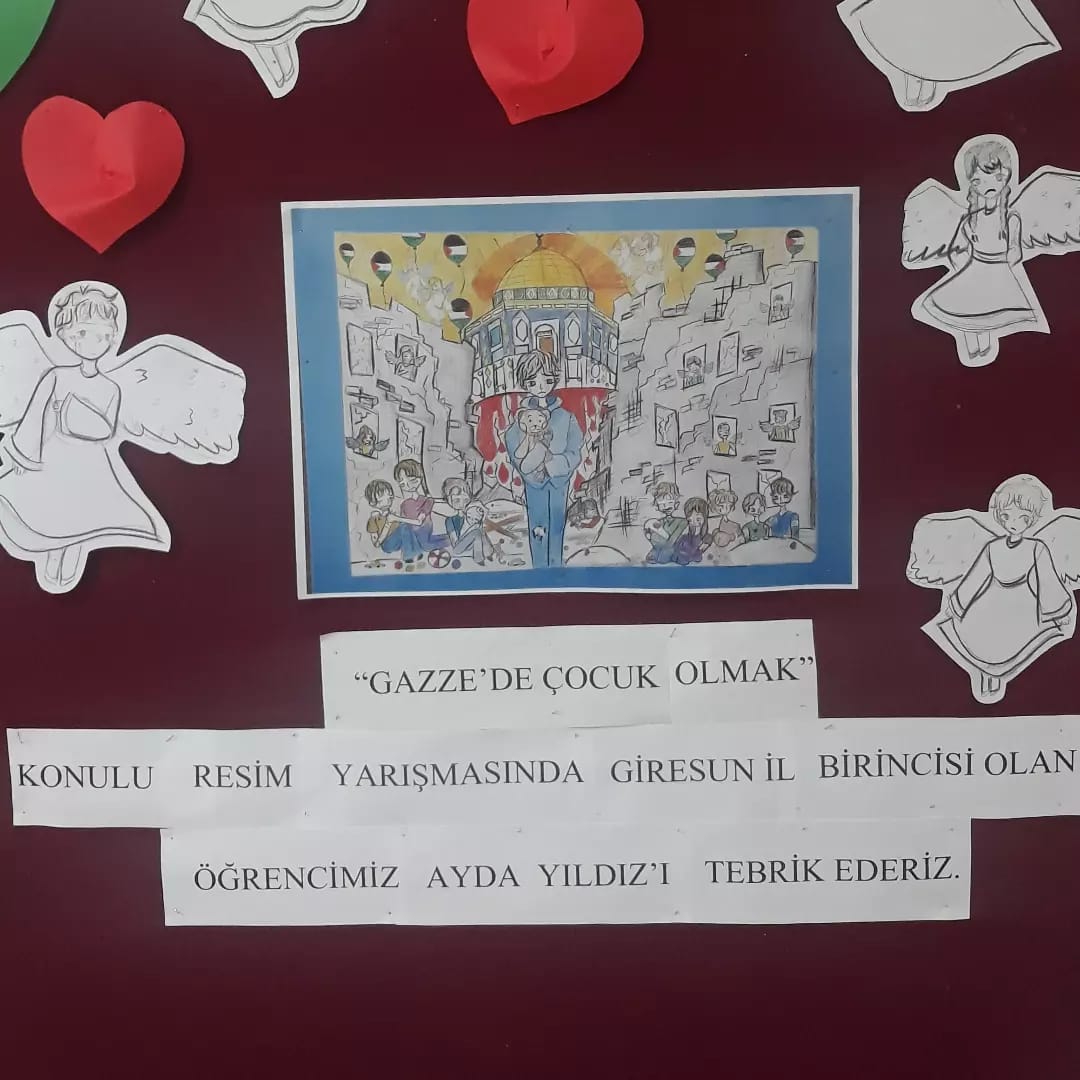 “GAZZE’DE ÇOCUK OLMAK”
KONULU RESİM YARIŞMASINDA GİRESUN İL BİRİNCİSİ OLAN
ÖĞRENCİMİZ AYDA YILDIZ’I TEBRİK EDERİZ.